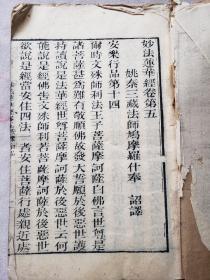 妙法蓮華經卷第五
姚秦三藏法師鳩摩羅什奉 詔譯
安樂行品第十四
爾時文殊師利法王子菩薩摩訶薩白佛言世尊是
諸菩薩甚為難有敬順佛故發大誓願於後惡世護
持讀說是法華經世尊菩薩摩訶薩於後惡世云何
能說是經佛告文殊師利若菩薩摩訶薩於後惡世
欲說是經當安住四法一者安住菩薩行處親近處